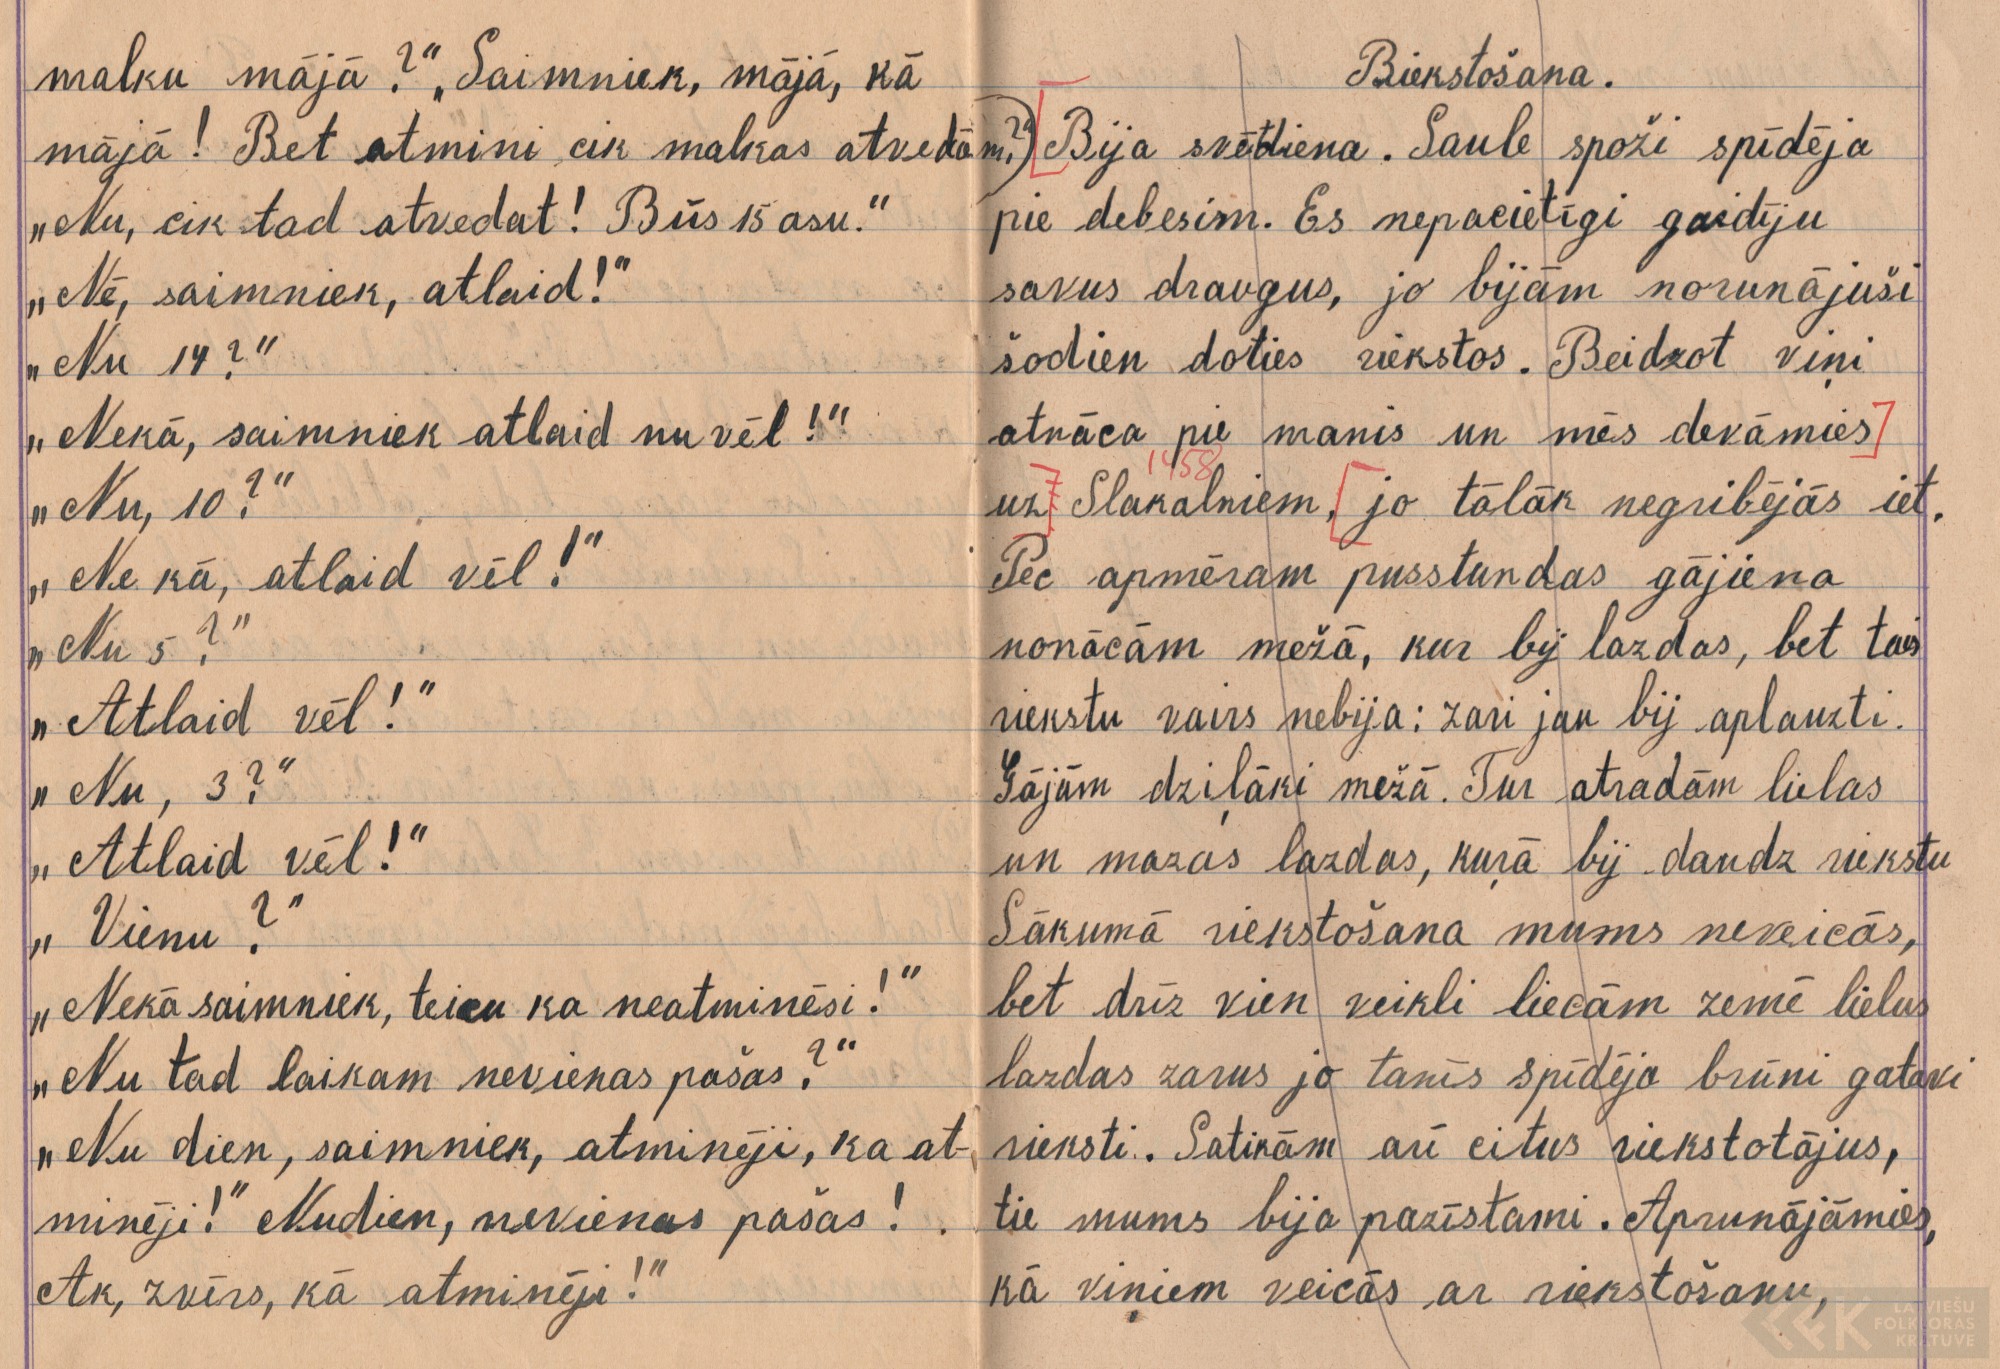 malku mājā?" „Saimniek, mājā, kā
mājā! Bet atmini cik malkas atvedām?"
„Nu, cik tad atvedat! Būs 15 asu."
„Nē, saimniek, atlaid!"
„Nu 14?"
„Nekā, saimniek atlaid nu vēl!"
„Nu, 10?"
„Ne kā, atlaid vēl!"
„Nu 5?"
„Atlaid vēl!"
„Nu, 3?"
„Atlaid vēl!"
„Vienu?"
„Nekā saimniek, teicu ka neatminēsi!"
„Nu tad laikam nevienas pašas?"
„Nu dien, saimniek, atminēji, ka at-
minēji!" Nudien, nevienas pašas!
Ak, zvērs, kā atminēji!"
Riekstošana.
Bija svētdiena. Saule spoži spīdēja
pie debesim. Es nepacietīgi gaidīju
savus draugus, jo bijām norunājuši
šodien doties riekstos. Beidzot viņi
atnāca pie manis un mēs devāmies
1458
uz Slakalniem, jo tālāk negribējās iet.
Pēc apmēram pusstundas gājiena
nonācām mežā, kur bij lazdas, bet tais
riekstu vairs nebija: zari jau bij aplauzti.
Gājām dziļāki mežā. Tur atradām lielas
un mazas lazdas, kuŗā bij daudz riekstu
Sākumā riekstošana mums neveicās,
bet drīz vien veikli liecām zemē lielus
lazdas zarus jo tanīs spīdēja brūni gatavi
rieksti. Satikām arī citus riekstotājus,
tie mums bija pazīstami. Aprunājāmies,
kā viņiem veicās ar riekstošanu,
LATVIEŠU
FOLKLORAS
KRĀTUVE